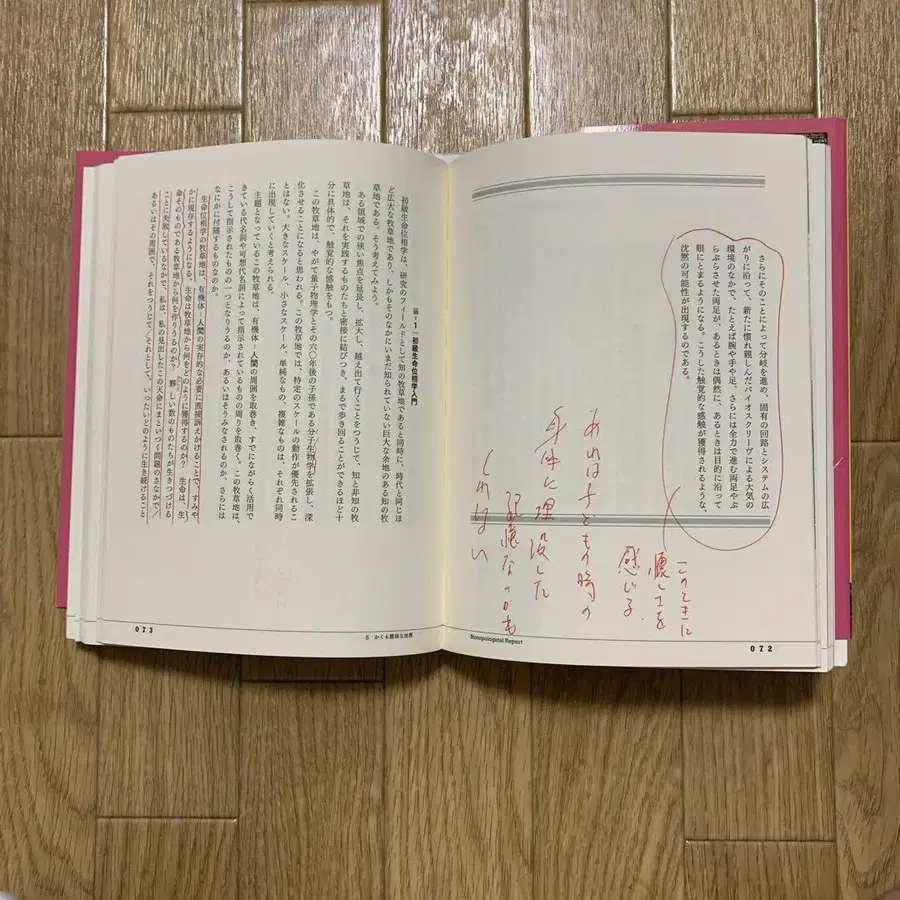 さらにそのことによって分岐を進め、固有の回路とシステムの広
がりに沿って、新たに慣れ親しんだバイオスクリーヴによる大気の
環境のなかで、たとえば腕や手や足、さらには全力で進む両足やぶ
らぶらさせた両足が、あるときは偶然に、あるときは目的に沿って
眼にとまるようになる。こうした触覚的な感触が獲得されるような、
沈黙の可能性が出現するのである。
このときに
懐しさを
感じる
あれは子どもの時の
身体に埋没した
記憶なのかも
しれない
Biotopological Report
072
論-1 初級生命位相学入門
初級生命位相学は、研究のフィールドとして知の牧草地であると同時に、時代と同じほ
ど広大な牧草地であり、しかもそのなかにいまだ知られていない巨大な余地のある知の牧
草地である。そう考えてみよう。
ある領域での狭い焦点を延長し、拡大し、越え出て行くことをつうじて、知と非知の牧
草地は、それを実践するものたちと密接に結びつき、まるで歩き回ることができるほど十
分に具体的で、触覚的な感触をもつ。
この牧草地は、やがて量子物理学とその六〇年後の子孫である分子生物学を拡張し、深
化させることになると思われる。この牧草地では、特定のスケールの動作が優先されるこ
とはない。大きなスケール、小さなスケール、単純なもの、複雑なものは、それぞれ同時
に出現していくと考えられる。
主題となっているこの牧草地は、有機体-人間の周囲を取巻き、すでにながらく活用で
きている代名詞や可想代名詞によって指示されているものの周りを取巻く。この牧草地は、
こうして指示されたものの一つとなりうるのか、あるいはそうみなされるのか、さらには
なにかに付随するものなのか。
生命位相学の牧草地は、有機体-人間の実存的な必要に直接訴えかけることで、すみや
かに規存するようになる。生命は牧草地から何をどのように獲得するのか? 生命は、生
命そのものである牧草地から何を作りうるのか? 夥しい数のものたちが生きつづける
ことに失敗しているなかで、私は、私の見出したこの天命にまといつく問題のさなかで/
あるいはその周囲で、それをつうじて/それとして、いったいどのように生き続けること
5 かくも胚体な世界
073